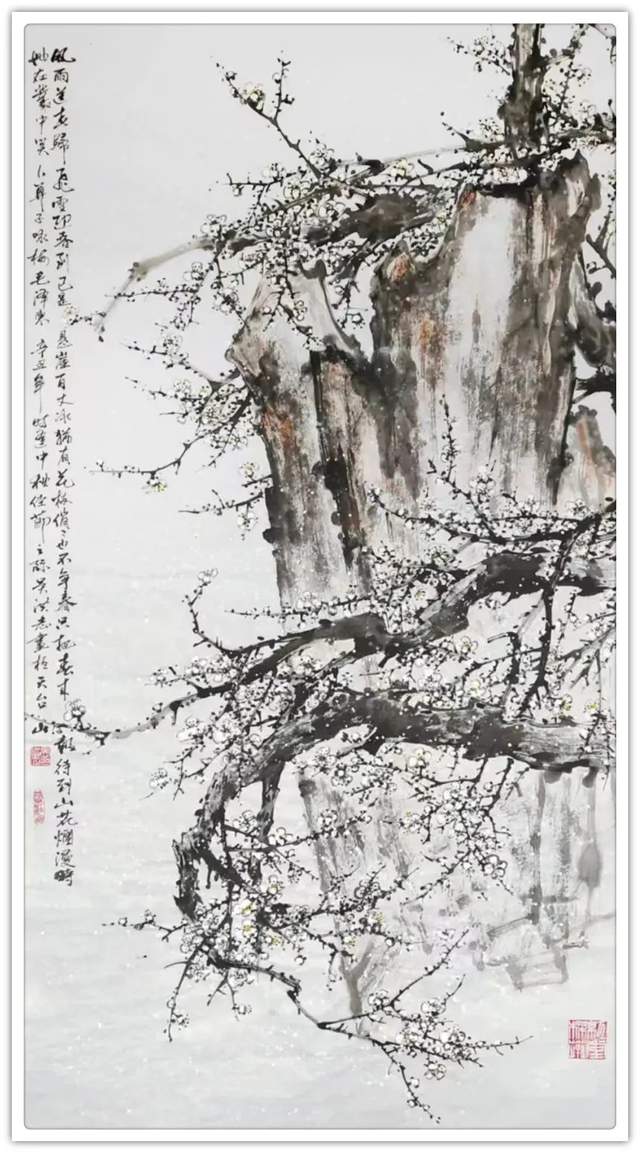 風雨送春歸飛雪迎春到已是悬崖百丈冰犹有花枝俏〻也不争春只把春来報待到山花爛漫時
她在叢中笑卜算子咏梅毛泽东辛丑年時逢中秋佳節之際吴洪志畫於天台山